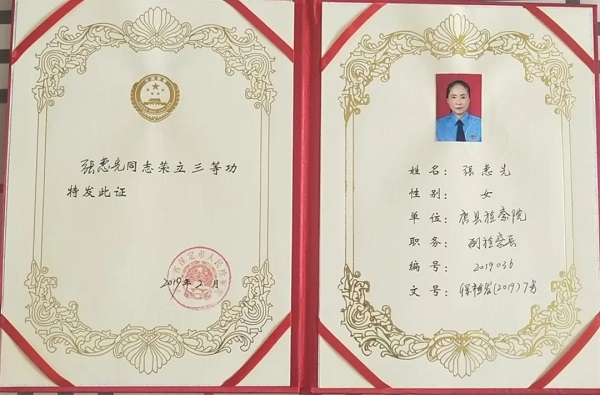 张惠先同志荣立三等功
特发此证
2019年2月
姓名：张惠先
性别：女
单位：唐县检察院
职务：副检察长
编号：2019036
文号：保检发(2019)7号